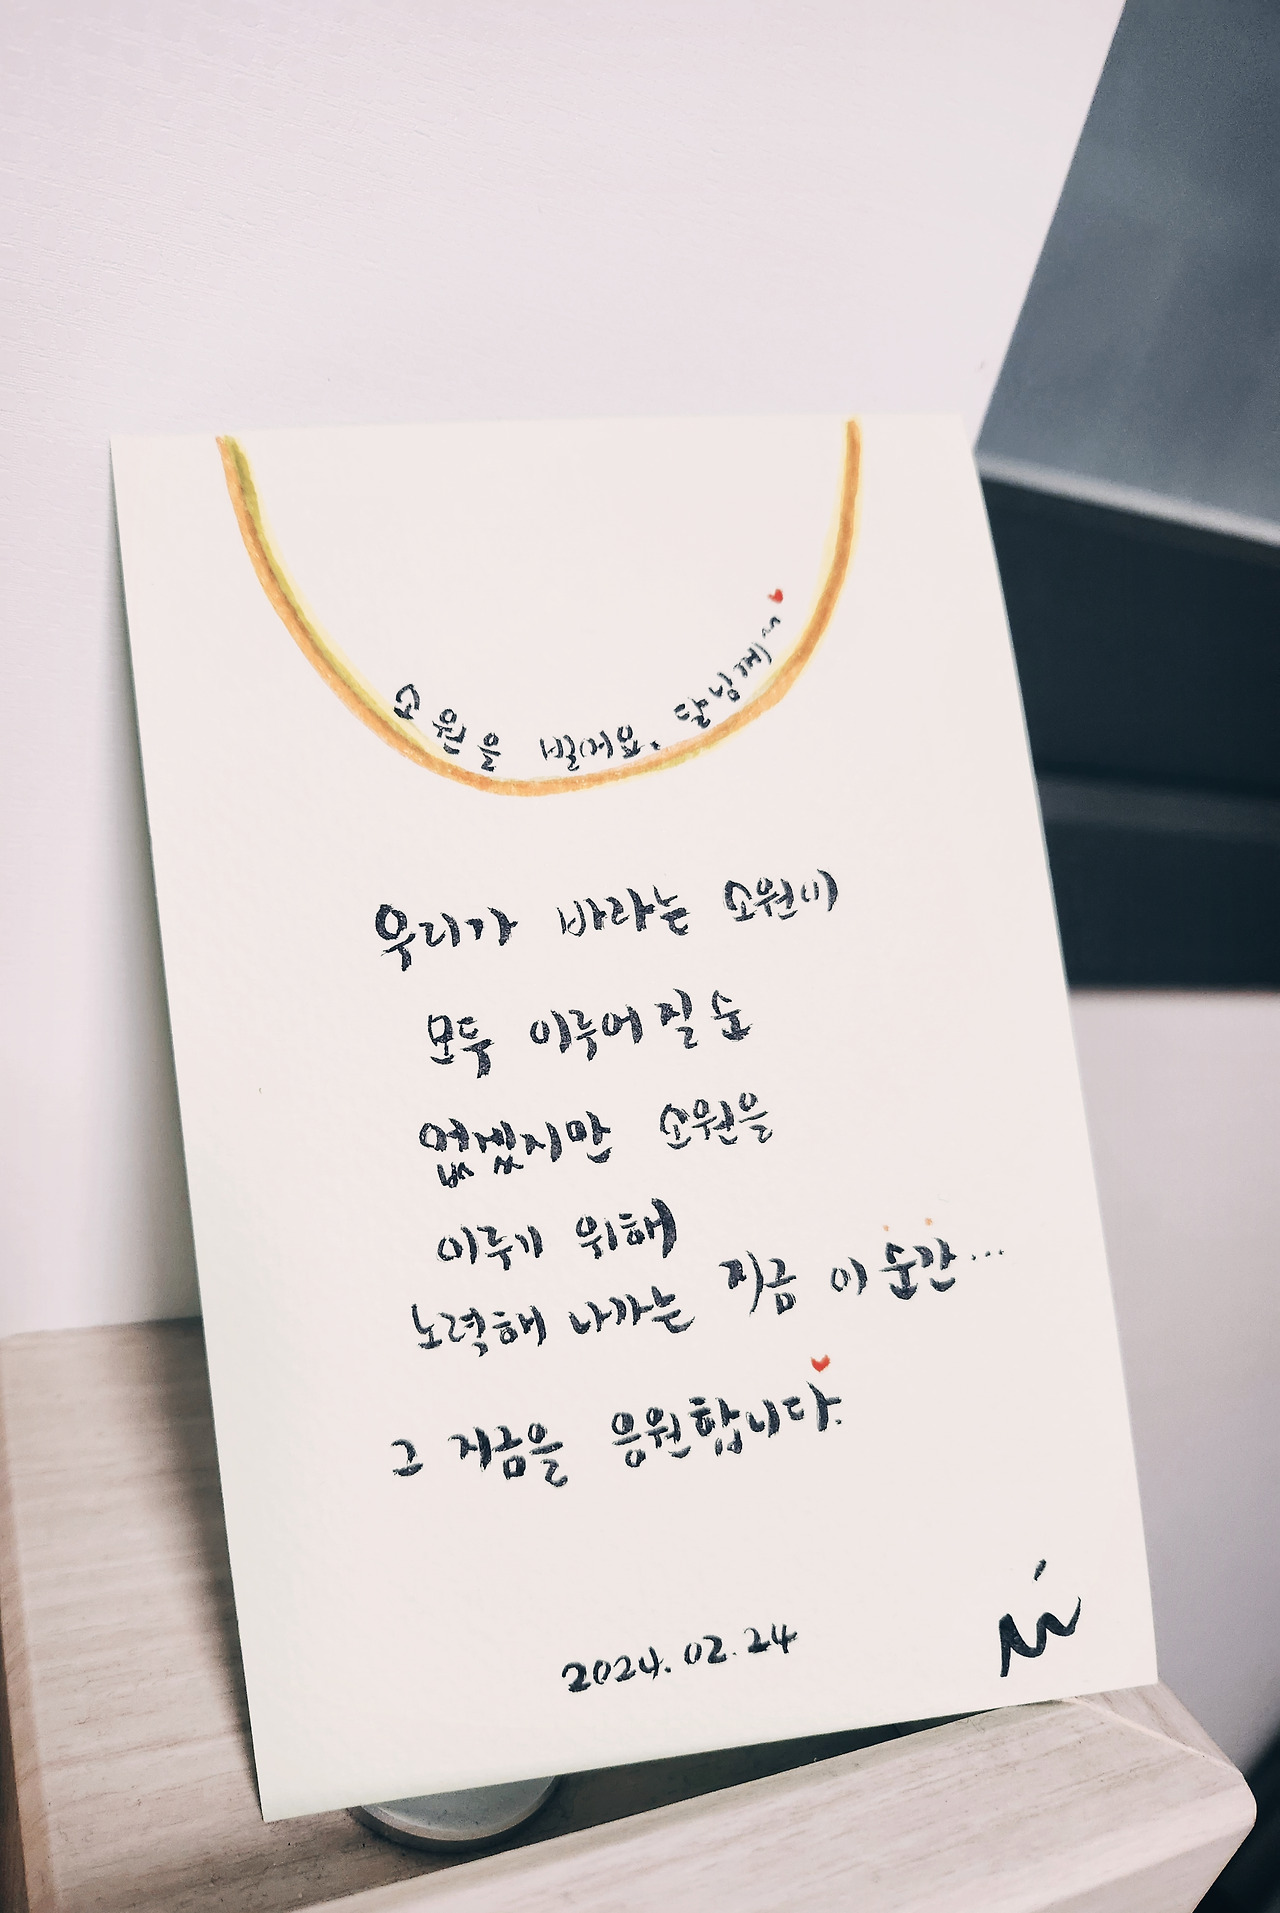 소원을 빌어요. 달님께~♥
우리가 바라는 소원이
모두 이루어질 순
없겠지만 소원을
이루기 위해
노력해 나가는 지금 이 순간...
그 지금을 응원합니다.
2024.02.24